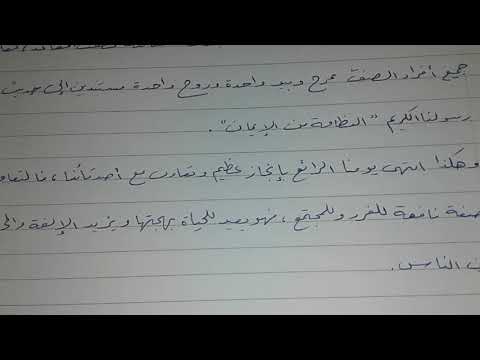 جميع أفراد الصف بمرح وبيد واحدة وروح واحدة مستندين إلى حديث
رسولنا الكريم "النظافة من الإيمان".
وهكذا انتهى يومنا الرائع بإنجاز عظيم وتعاون مع أصدقائنا، فالتعاو
صفة نافعة للفرد وللمجتمع، فهو يعيد للحياة بهجتها ويزيد الإلفة والمح
الناس.